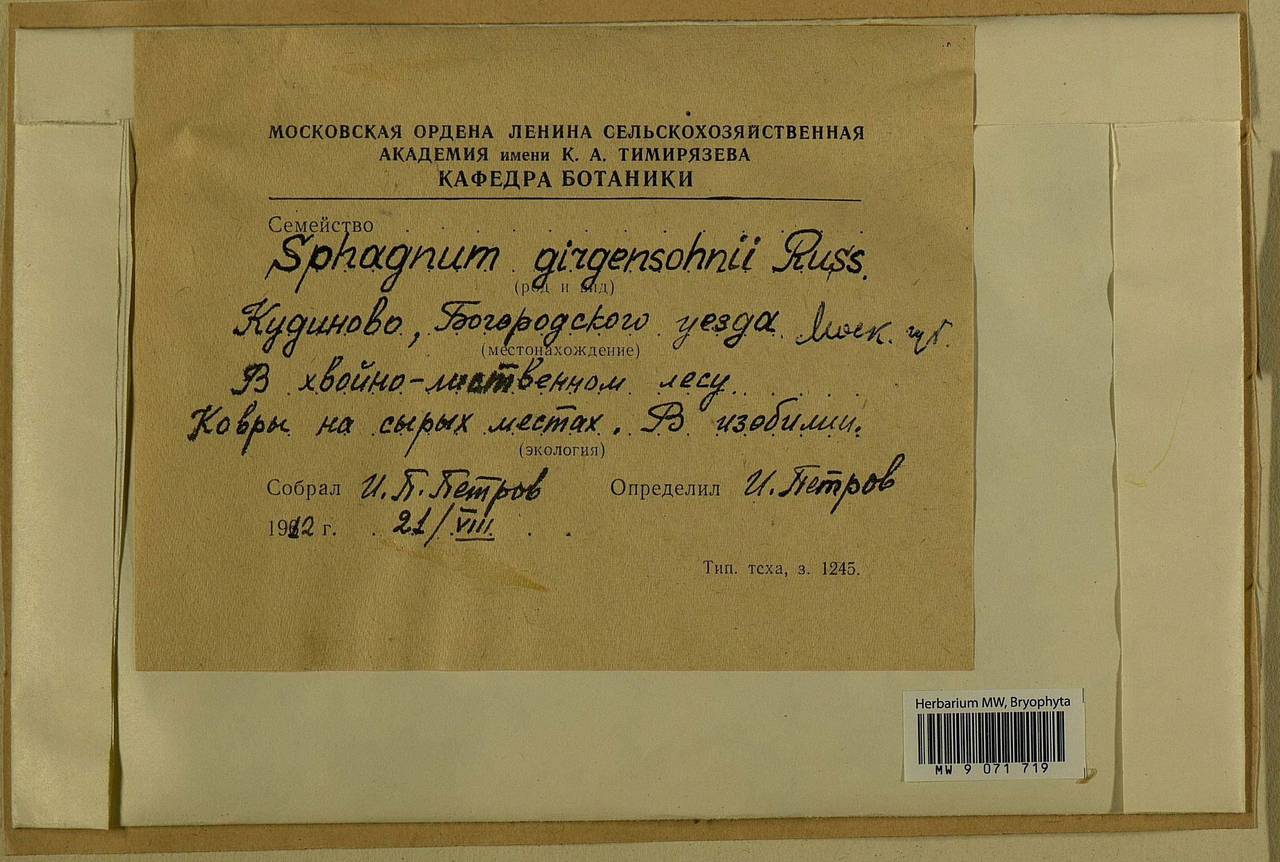 МОСКОВСКАЯ ОРДЕНА ЛЕНИНА СЕЛЬСКОХОЗЯЙСТВЕННАЯ
АКАДЕМИЯ имени К. А. ТИМИРЯЗЕВА
КАФЕДРА БОТАНИКИ
Семейство
Sphagnum girgensohnii Russ.
(род и вид)
Кудиново, Богородского уезда Моск. губ.
(местонахождение)
В хвойно-лиственном лесу
Ковры на сырых местах. В изобилии.
(экология)
Собрал И. П. Петров Определил И. Петров
1912 г. 21/VIII
Тип. тсха, з. 1245.
Herbarium MW, Bryophyta
MW 9 071 719